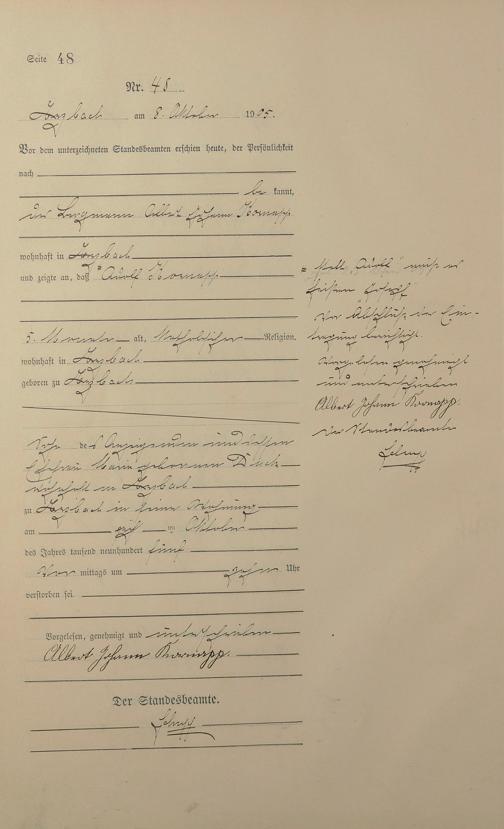 Seite 48
Nr. 48
am 8. Oktober 1905.
Vor dem unterzeichneten Standesbeamten erschien heute, der Persönlichkeit
nach
be kannt,
der Bergmann Albert Johann Kornapp
wohnhaft in
und zeigte an, daß Adolf Kornapp
5 Monate alt, katholischer Religion,
wohnhaft in
geboren zu
Sohn des Anzeigenden und dessen
Ehefrau Maria geborenen
wohnhaft in
zu in seiner Wohnung
am ten Oktober
des Jahres tausend neunhundert fünf
Vor mittags um zehn Uhr
verstorben sei.
Vorgelesen, genehmigt und unterschrieben
Albert Johann Kornapp.
Der Standesbeamte.
Statt „Adolf“ muß es
heißen Josef
Vor Abschluß der Ein-
tragung berichtigt.
Vorgelesen genehmigt
und unterschrieben
Albert Johann Kornapp.
der Standesbeamte